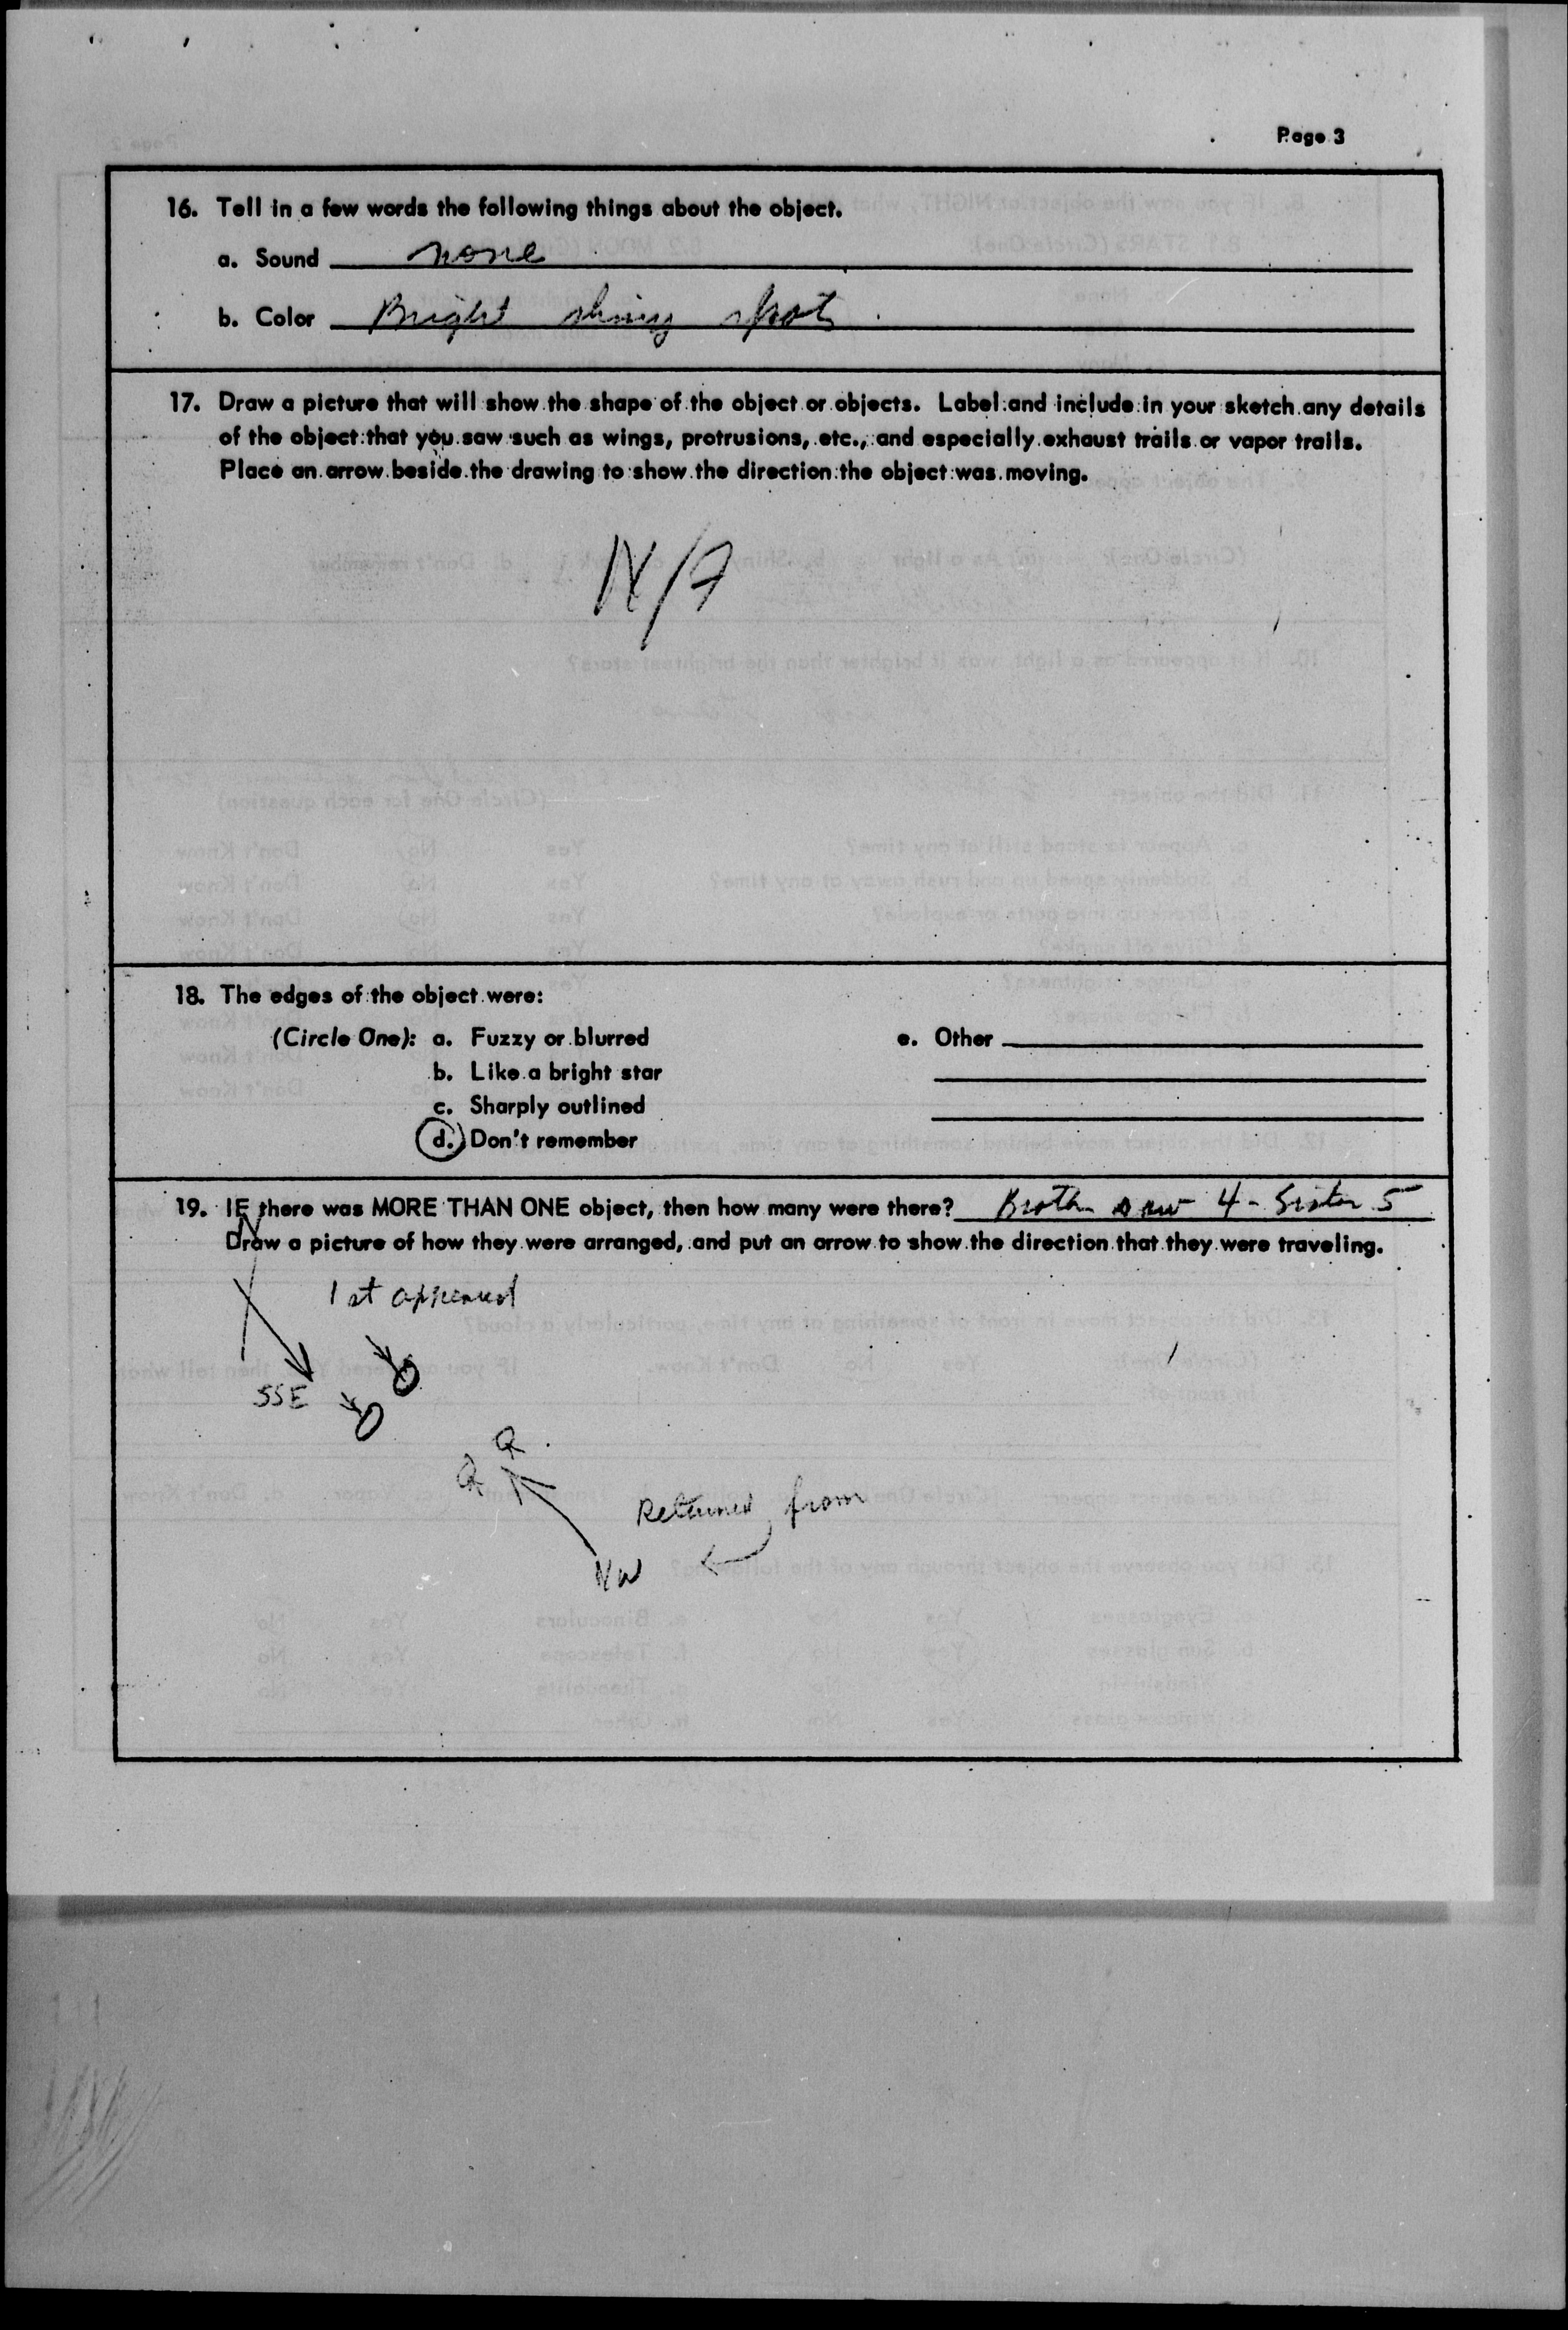 Page 3
16. Tell in a few words the following things about the object.
a. Sound none
b. Color Bright shiny spot
17. Draw a picture that will show the shape of the object or objects. Label and include in your sketch any details
of the object that you saw such as wings, protrusions, etc., and especially exhaust trails or vapor trails.
Place an arrow beside the drawing to show the direction the object was moving.
N/A
18. The edges of the object were:
(Circle One): a. Fuzzy or blurred
e. Other
b. Like a bright star
c. Sharply outlined
d. Don't remember
19. IF there was MORE THAN ONE object, then how many were there? Brother saw 4 - Sister 5
Draw a picture of how they were arranged, and put an arrow to show the direction that they were traveling.
N
1st appeared
SSE
Returned from
NW